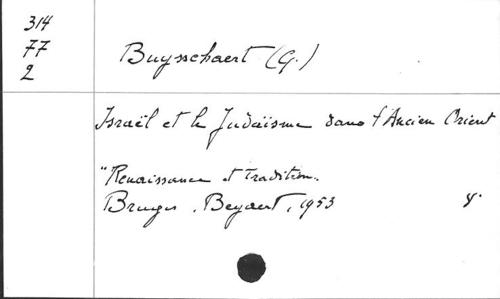 314
77
2
Buysschaert (G.)
Israël et le Judaïsme dans l'Ancien Orient
"Renaissance et Tradition.
Bruges, Beyaert, 1953 8°